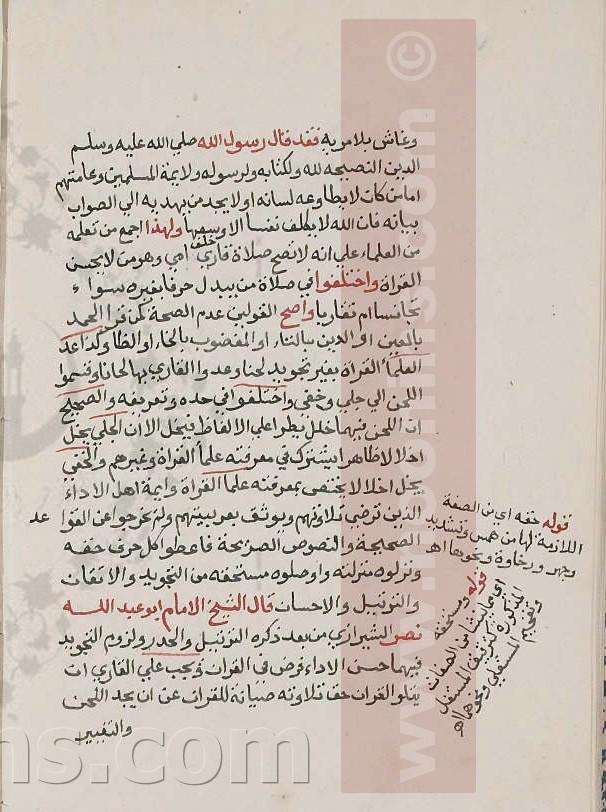 وغاش بلا مرية فقد قال رسول الله صلي الله عليه وسلم
الدين النصيحه لله ولكتابه ولرسوله ولايمة المسلمين وعامتهم
اما من كان لا يطاوعه لسانه او لا يجد من يهديه الي الصواب
بيانه فان الله لا يكلف نفسا الا وسعها ولهذا اجمع من نعلمه
من العلماء علي انه لا تصح صلاة قاري خلف امي وهو من لا يحسن
القراة واختلفوا في صلاة من يبدل حرفا بغيره سواء
تجانسا ام تقاربا واصح القولين عدم الصحة كمن قرا الحمد
بالعين او الدين بالتاء او المغضوب بالخاء او الظاء ولذا عد
العلماء القراة بغير تجويد لحنا وعدوا القاري بها لحانا وقسموا
اللحن الي جلي وخفي واختلفوا في حده وتعريفه والصحيح
ان اللحن فيهما خلل يطرا علي الالفاظ فيخل الا ان الجلي يخل
اخلالا ظاهرا يشترك في معرفته علماء القراة وغيرهم والخفي
يخل اخلالا يختص بمعرفته علماء القراة وايمة اهل الاداء
الذين ترضي تلاوتهم ويوثق بعربيتهم ولم يخرجوا عن القوا
عد
الصحيحة والنصوص الصريحة فاعطوا كل حرف حقه
ونزلوه منزلته واوصلوه مستحقه من التجويد والاتقان
والترتيل والاحسان قال الشيخ الامام ابو عبد الله
نصر الشيرازي من بعد ذكره الترتيل والحدر ولزوم التجويد
فيهما حسن الاداء فرض في القران ويجب علي القاري ان
يتلو القران حق تلاوته صيانة للقران عن ان يجد اللحن
والتغيير
قوله حقه اي من الصفة
اللازمة لها من همس وتشديد
وجهر ورخاوة ونحوها اه
قوله ومستحقه
اي ما ينشا من الصفات
المذكورة كترقيق المستفل
وتفخيم المستعلي ونحوهما اه
©
ns.com